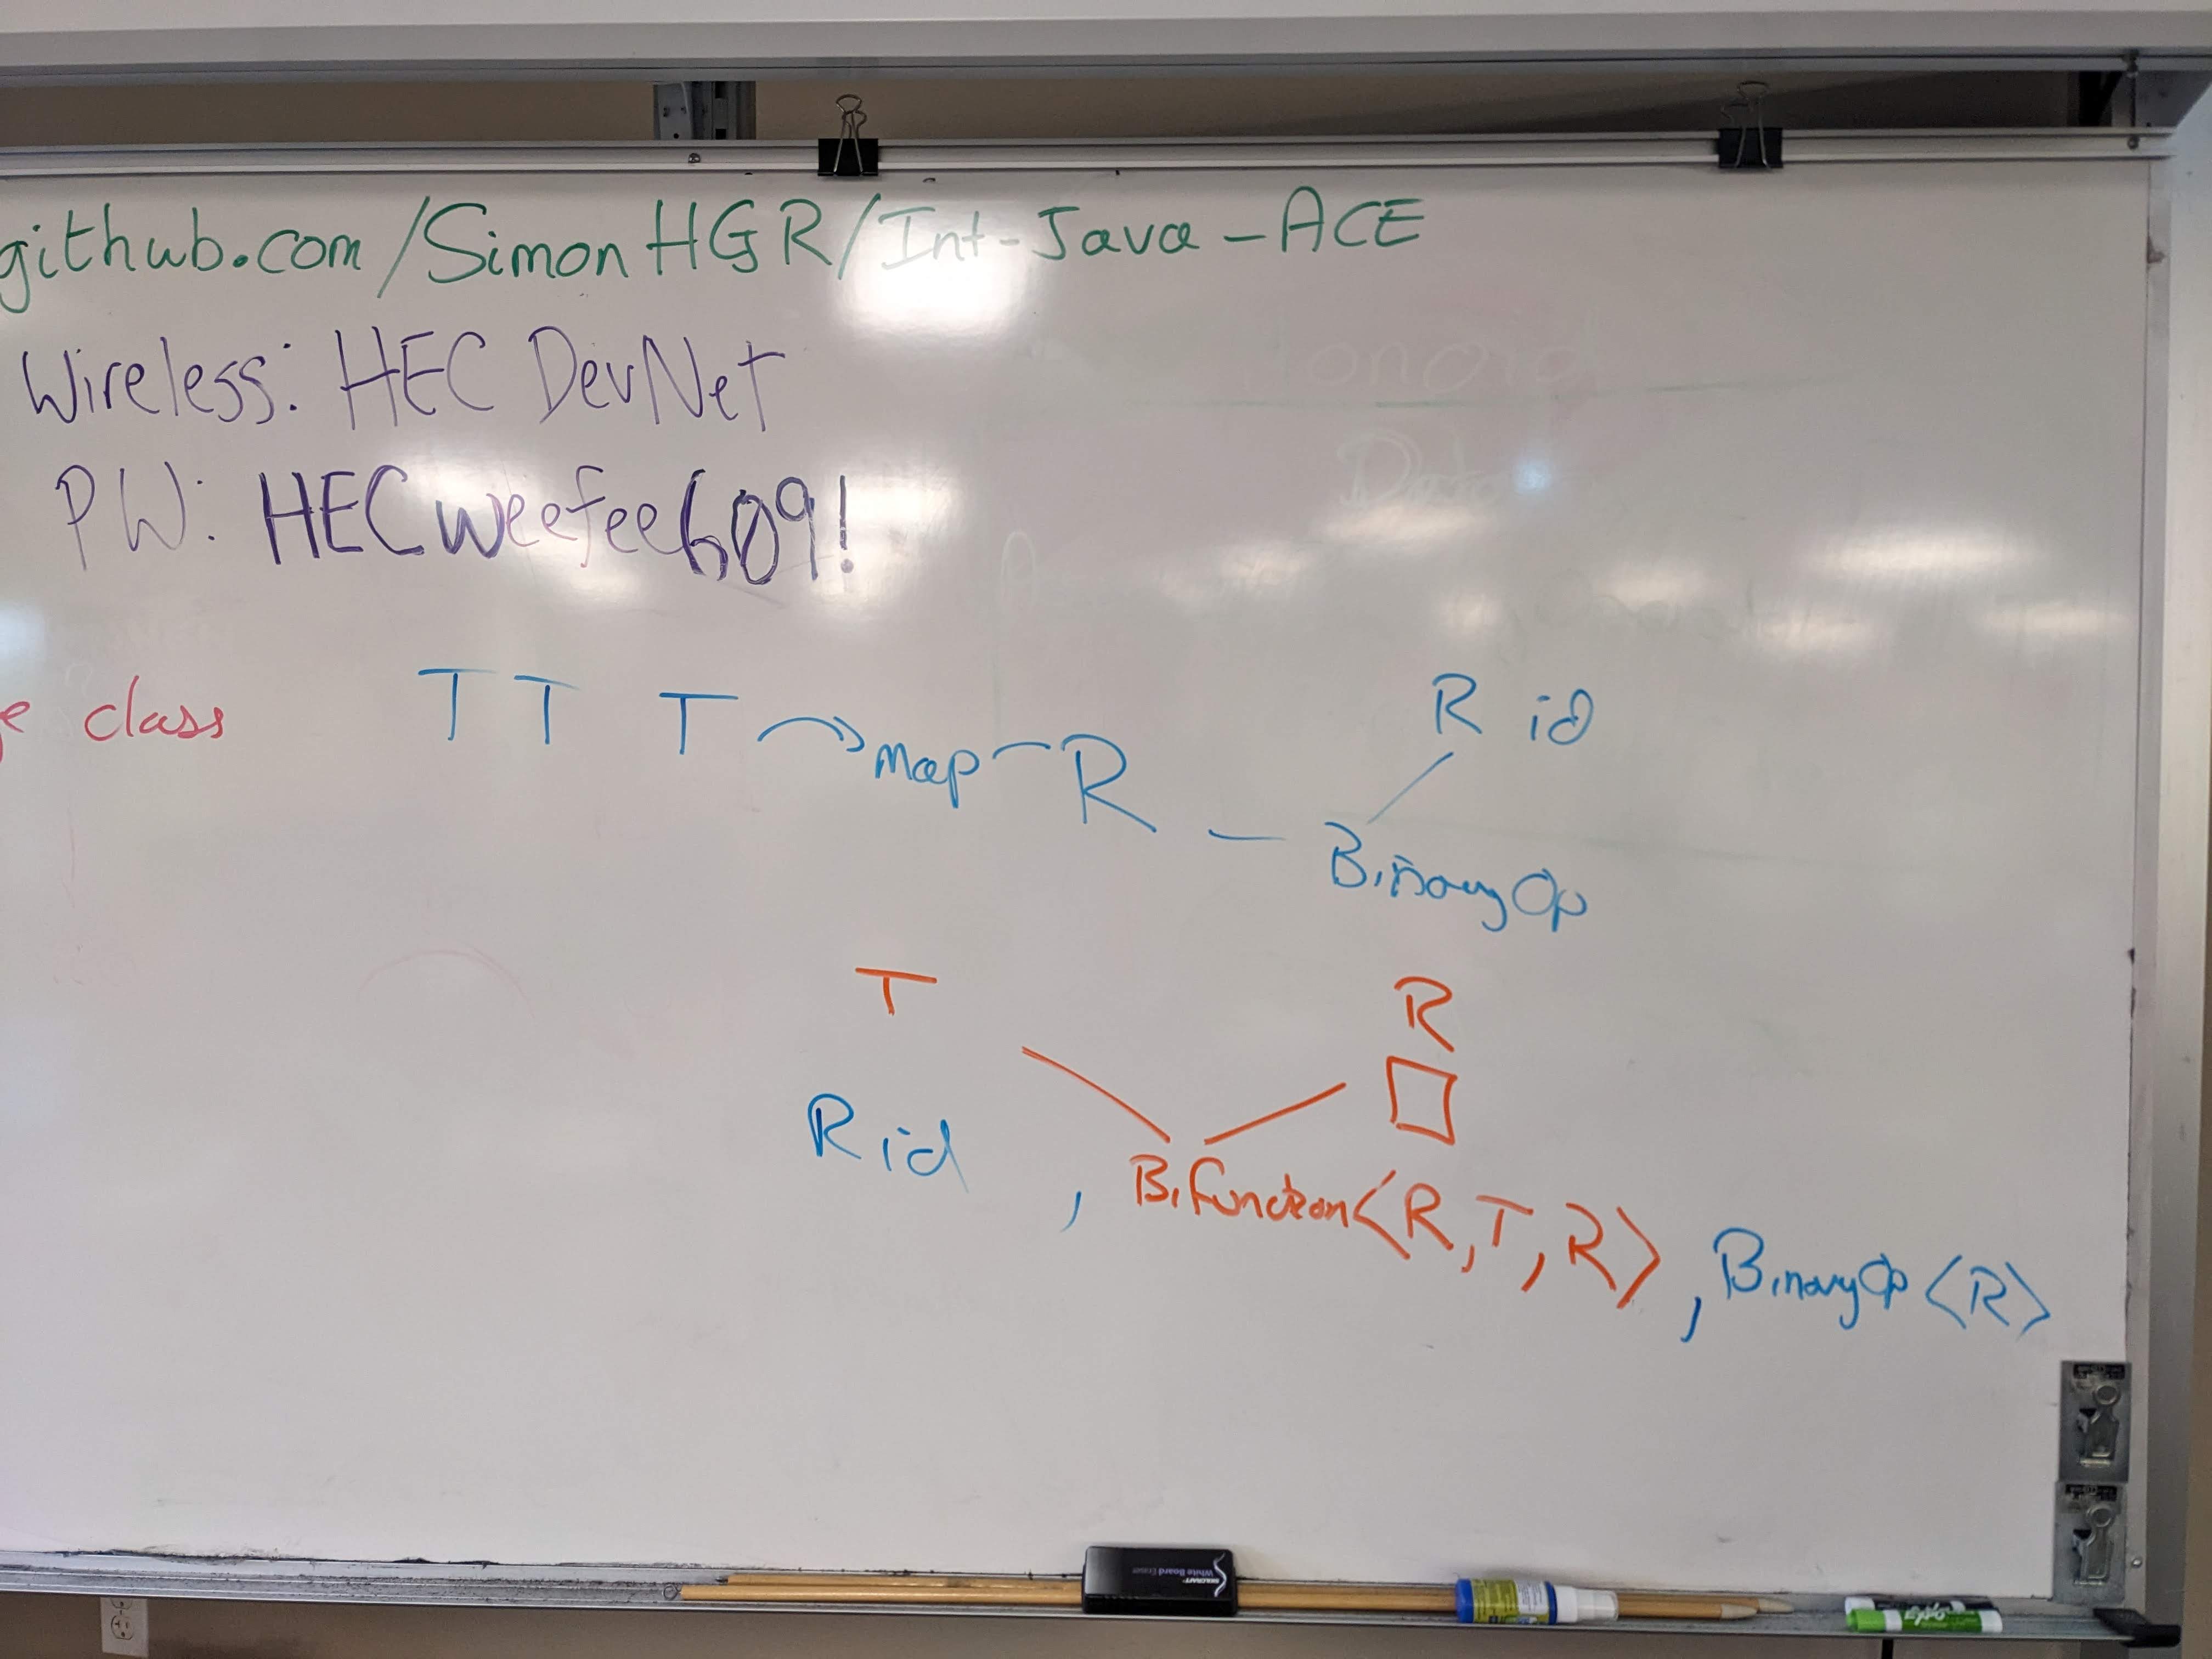 github.com/SimonHGR/Int-Java-ACE
Wireless: HEC DevNet
PW: HECweefee609!
class
T T T map R
R id
BinaryOp
T
R
R id , BiFunction<R,T,R> , BinaryOp<R>
White Board Eraser
EXPO